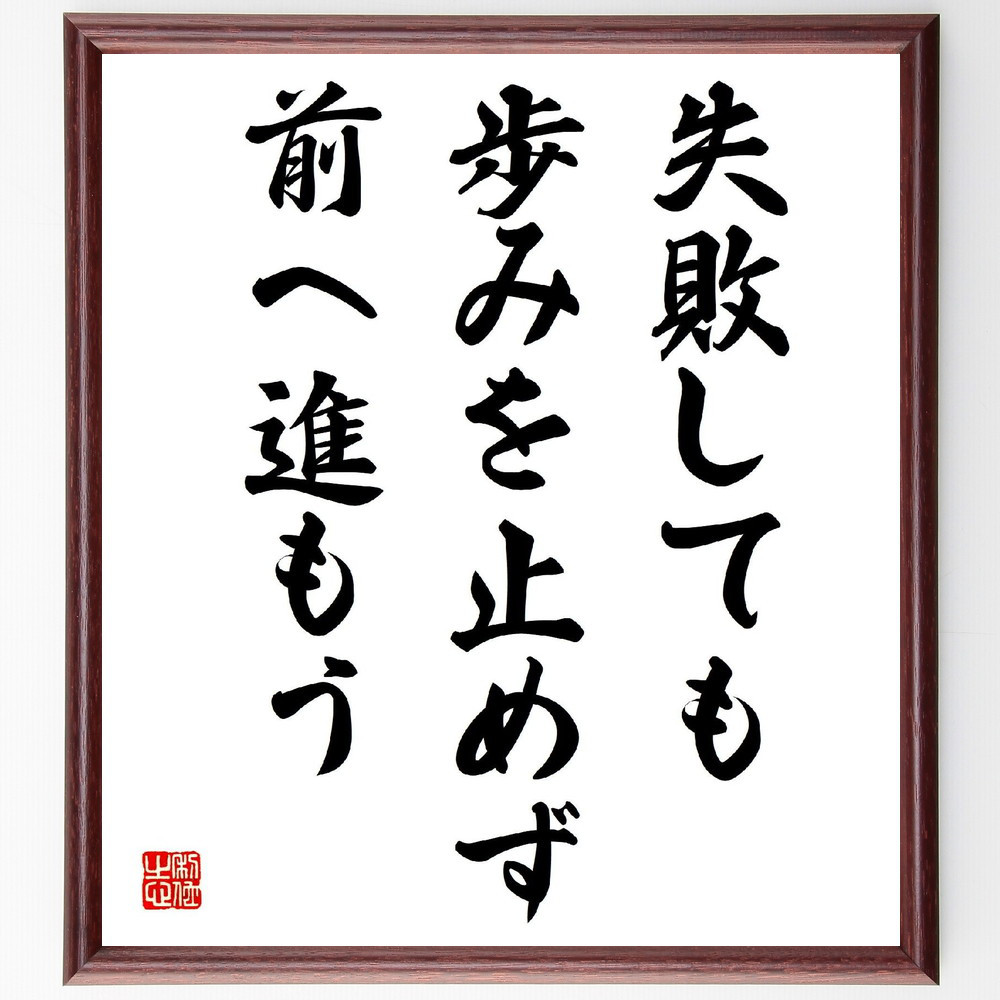 失敗しても
歩みを止めず
前へ進もう